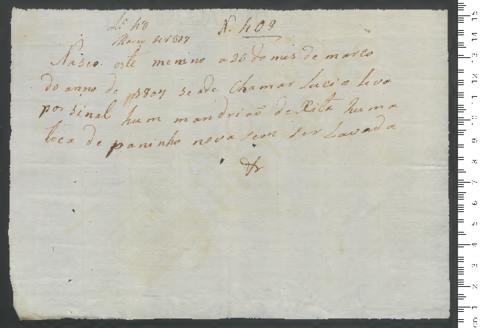 Lº 48
Março de 1807
N. 409
Nasceo este menino a 26 do mes de março
do anno de 1807 se ade chamar Lucio leva
por sinal hum mandrião de xita huma
toca de paninho nova sem ser Lavada